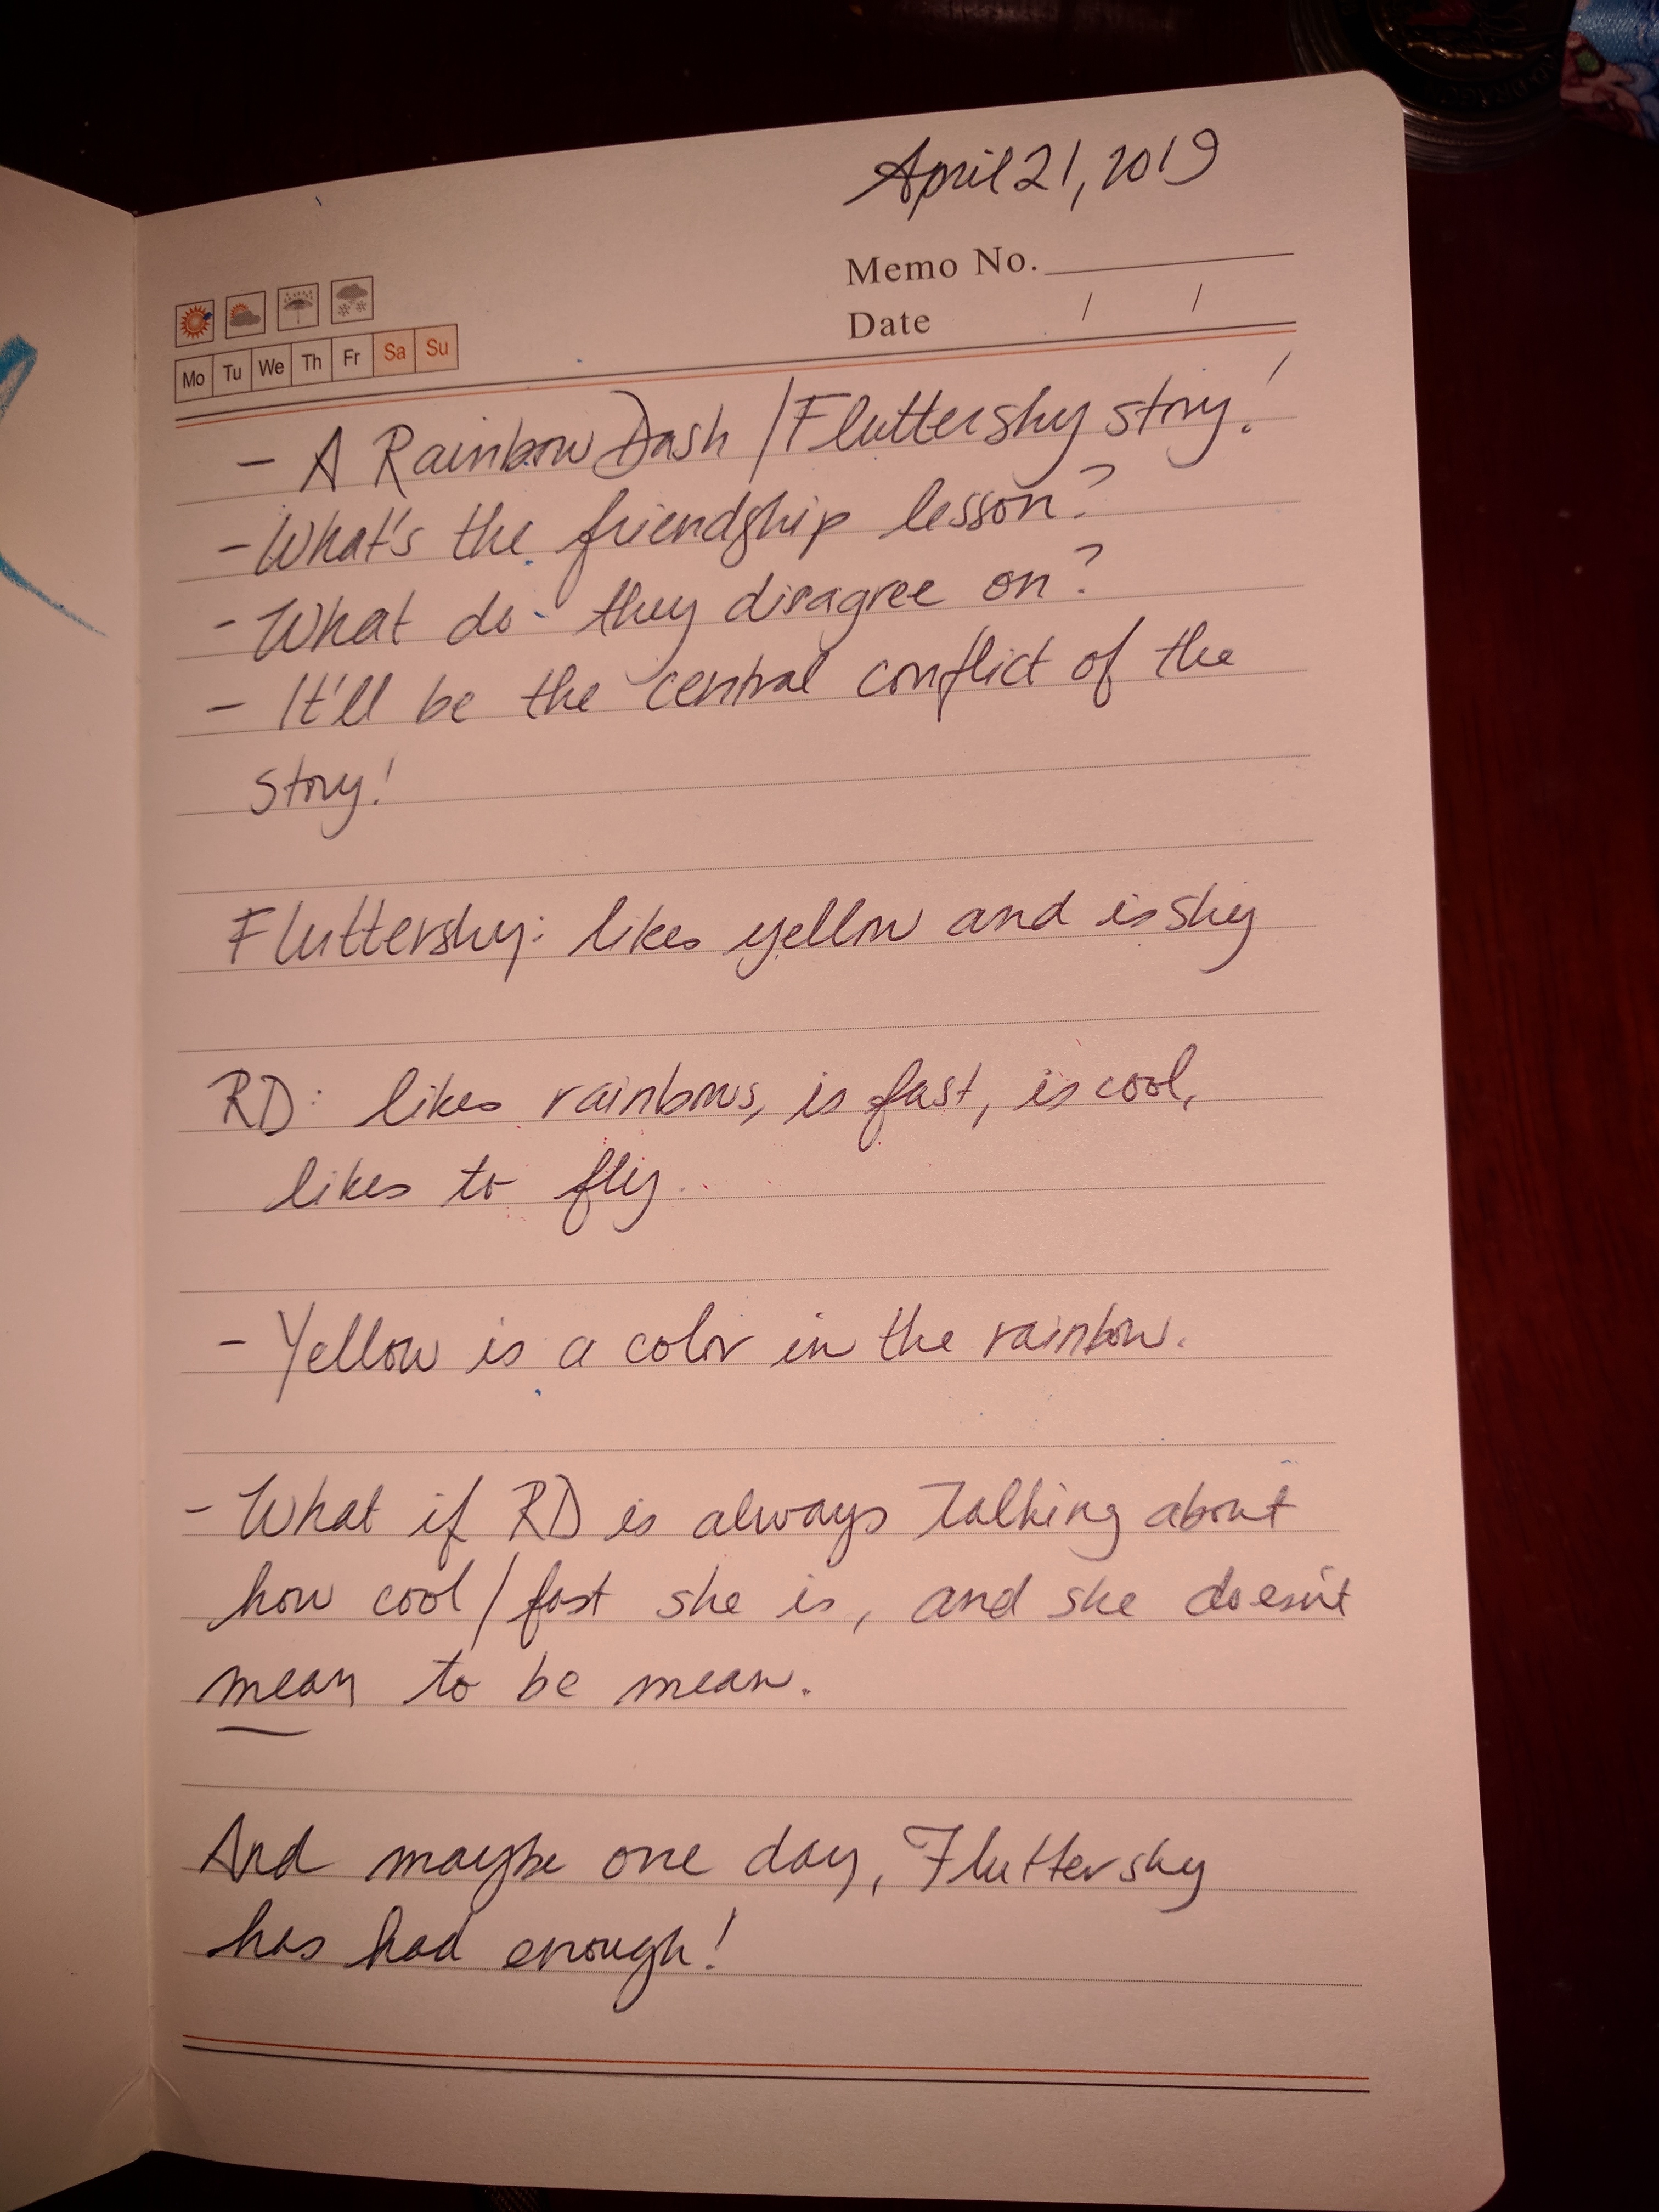 April 21, 2019
Memo No.
Date / /
Mo Tu We Th Fr Sa Su
- A Rainbow Dash / Fluttershy story!
- What's the friendship lesson?
- What do they disagree on?
- It'll be the central conflict of the
story!
Fluttershy: likes yellow and is shy
RD: likes rainbows, is fast, is cool,
likes to fly.
- Yellow is a color in the rainbow.
- What if RD is always talking about
how cool / fast she is, and she doesn't
mean to be mean.
And maybe one day, Fluttershy
has had enough!